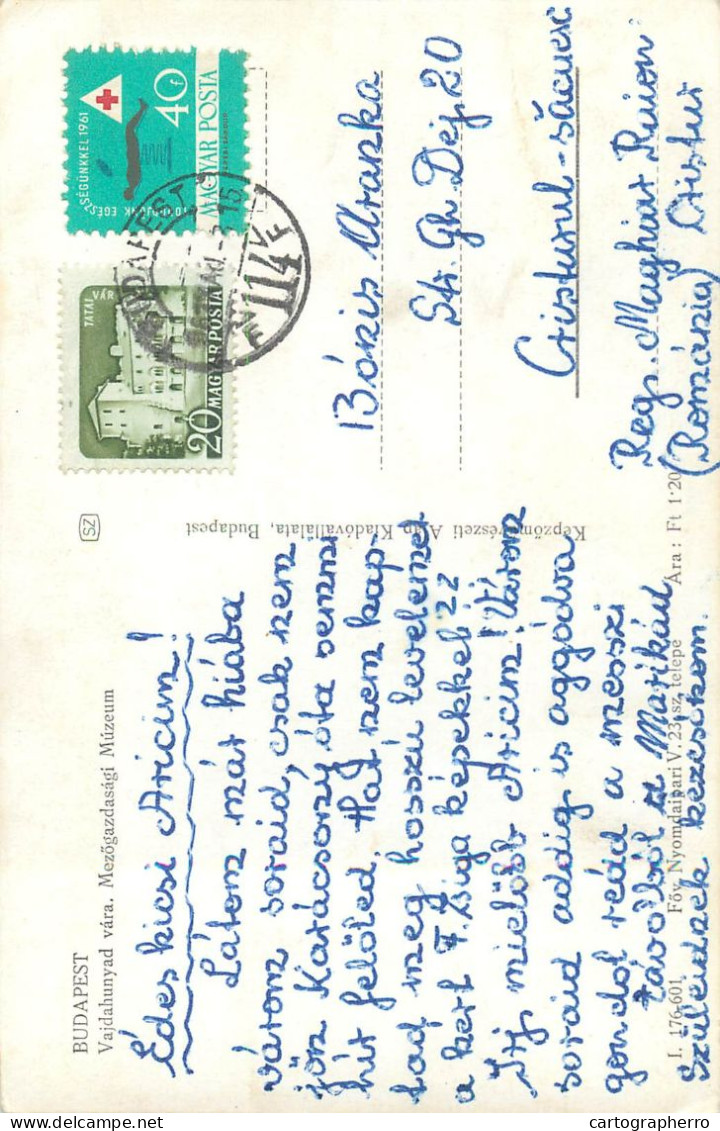 BUDAPEST
Vajdahunyad vára. Mezőgazdasági Múzeum
Édes kicsi Aricim!
Látom már hiába
várom soraid, csak nem
jön. Karácsony óta semmi
hír felőled. Hát nem kap-
tad meg hosszú levelemet
a kert F. Zsiga képekkel? Izz
Írj mielőbb Aricim! Várom
soraid addig is aggódva
gondol reád a messzi
távolból a Marikád
Szüleidnek kezcsókom.
I. 176.601 Főv. Nyomdaipari V. 23. sz. telepe Ára: Ft 1·20
SZ
Képzőművészeti Alap Kiadóvállalata, Budapest
TATAI
VÁR
20 MAGYAR POSTA
SÉGÜNKKEL 1961
EGÉSZ
40 f
MAGYAR POSTA
BUDAPEST
114
Str. Gh Dej. 20
Cristurul-săcuesc
Reg. Maghiar Raion
(România) Cristur
cartographerro